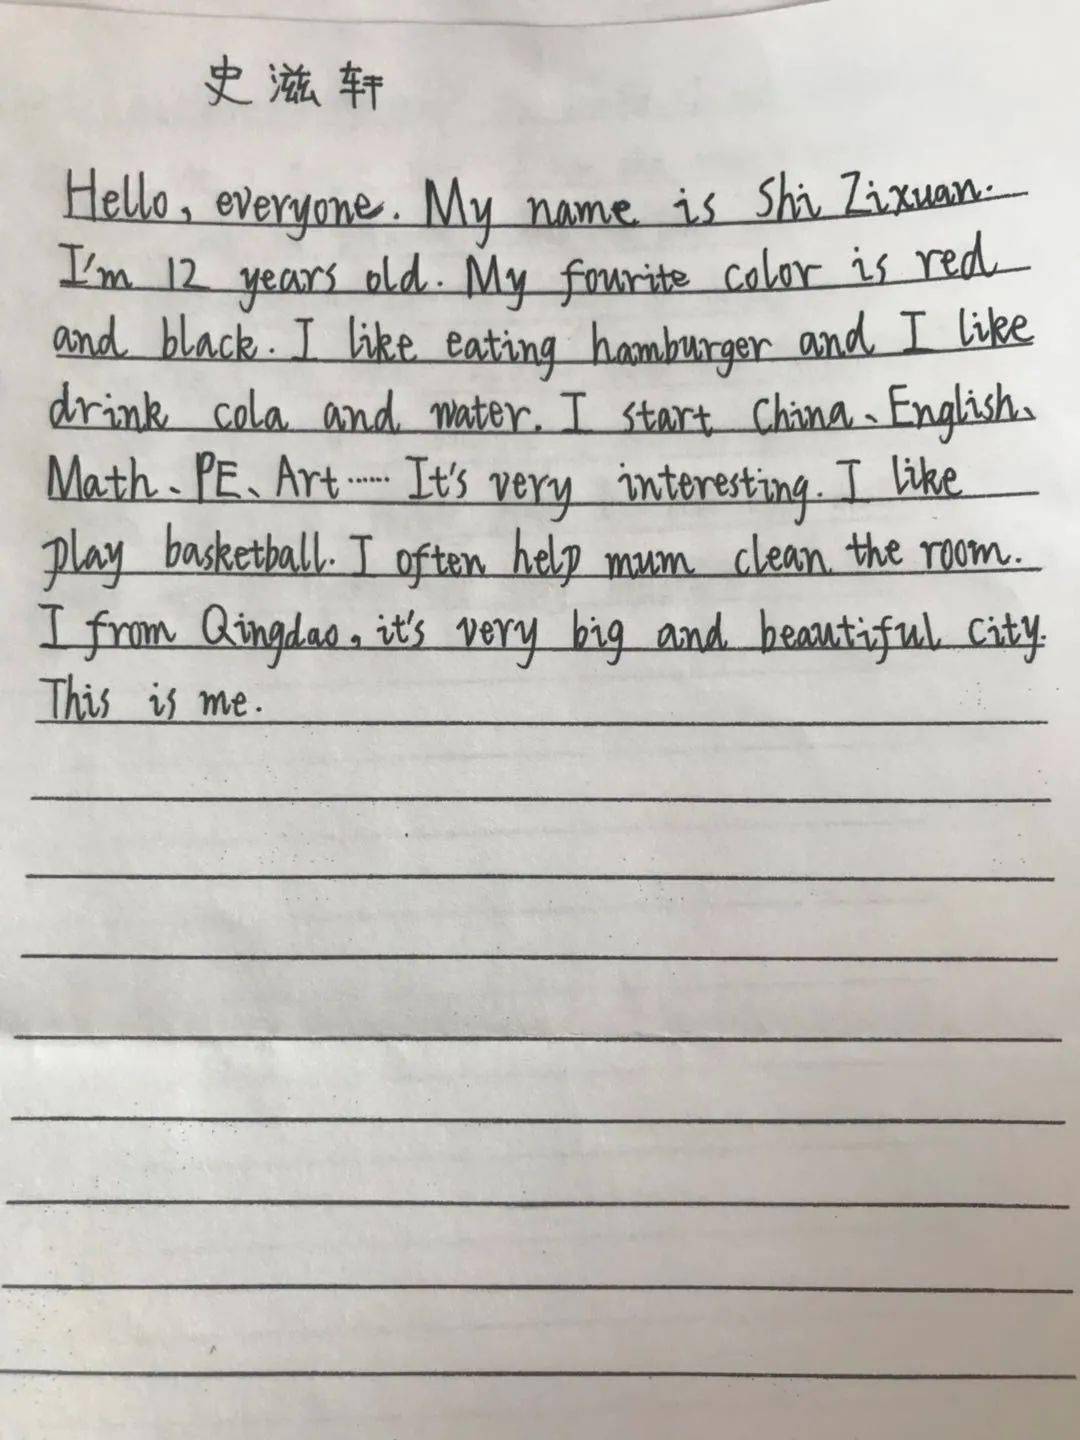 史滋轩
Hello, everyone. My name is Shi Zixuan.
I'm 12 years old. My fourite color is red
and black. I like eating hamburger and I like
drink cola and water. I start China、English、
Math、PE、Art…… It's very interesting. I like
play basketball. I often help mum clean the room.
I from Qingdao, it's very big and beautiful city.
This is me.